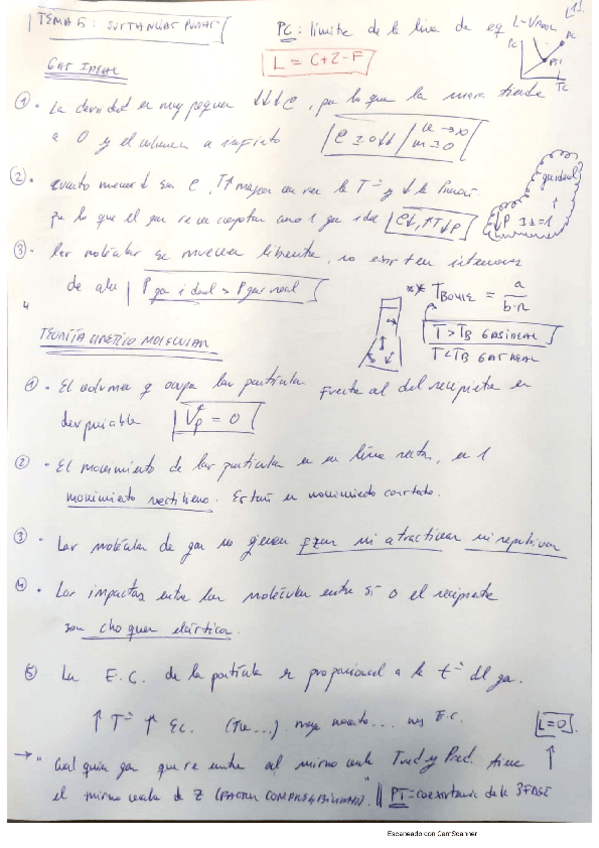 TEMA 5: SUSTANCIAS PURAS
PC: límite de la línea de eq L-Vapor
L = C+2-F
PC
PC
PT
TC
GAS IDEAL
① · La densidad es muy pequeña ↓↓↓ρ, por lo que la masa tiende
a 0 y el volumen a infinito
② · cuanto menor sea ρ, T↑ mayor la Tª y ↓ la Presión.
por lo que el gas se va comportar como 1 gas ideal ρ↓, ↑T ↓P
gas ideal
↓P z=1
③ · Las moléculas se mueven libremente, no existen
de P gas ideal > P gas real
** T BOYLE = a
b·R
T > TB GAS IDEAL
T < TB GAS REAL
TEORÍA CINETICO MOLECULAR
① · El volumen q ocupa las partículas frente al del recipiente es
despreciable Vp = 0
② · El movimiento de las partículas es en línea recta, en 1
movimiento rectilíneo. Están en movimiento constante.
③ · Las moléculas de gas no ejercen fzas ni atractivas ni repulsivas
④ · Los impactos entre las moléculas entre sí o el recipiente
son choques elásticos.
⑤ La E.C. de la partícula es proporcional a la tª del gas.
↑ Tª ↑ Ec. mas E.C.
L=0
→ "Cualquier gas que se encuentre al mismo Tred y Pred. tiene
el mismo valor de Z (FACTOR COMPRESIBILIDAD)" || PT = coexistencia de la 3 FASE
Escaneado con CamScanner